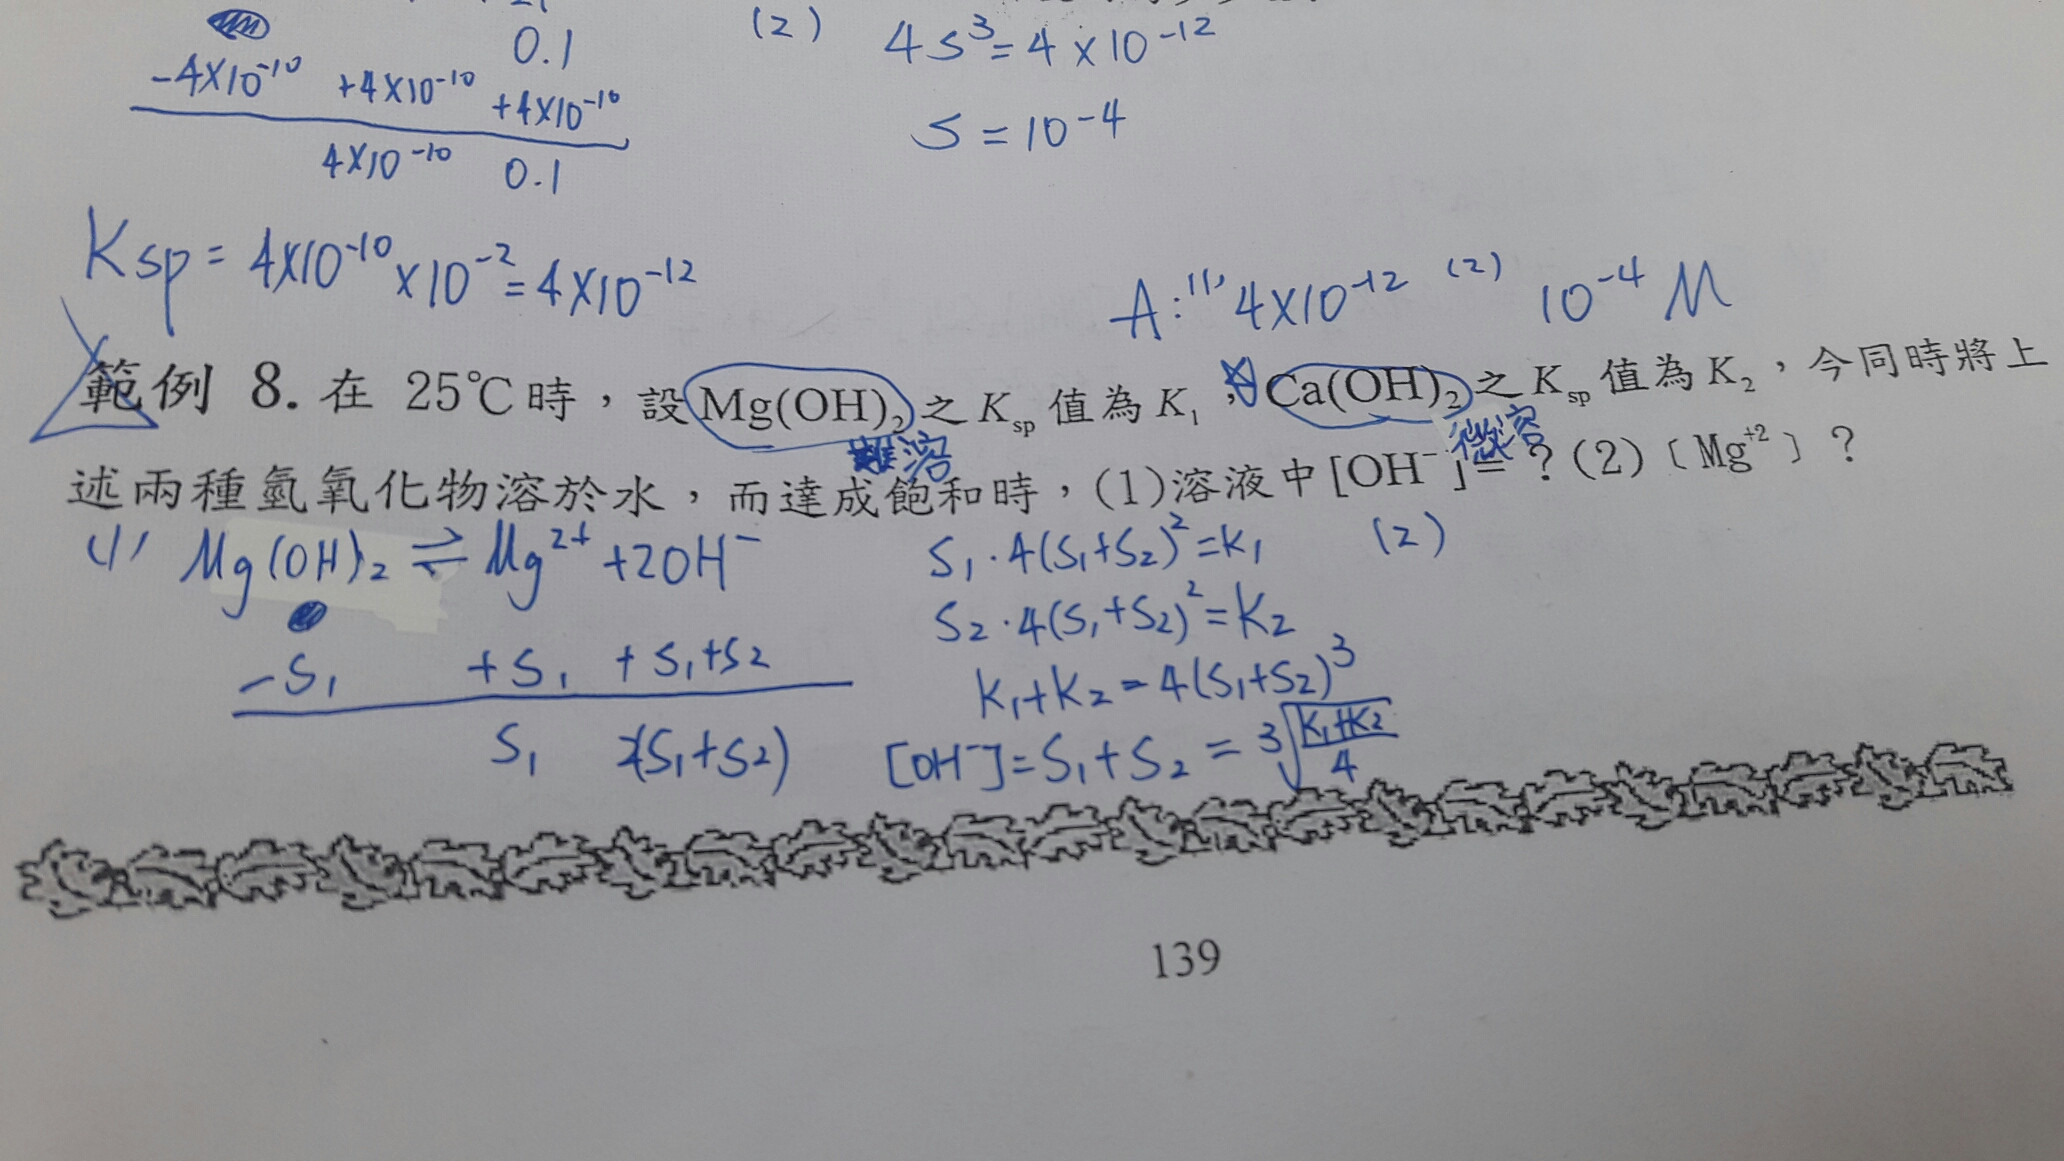 0.1
-4×10⁻¹⁰ +4×10⁻¹⁰ +4×10⁻¹⁰
4×10⁻¹⁰ 0.1
(2) 4S³=4×10⁻¹²
S=10⁻⁴
Ksp=4×10⁻¹⁰×10⁻²=4×10⁻¹²
A:(1) 4×10⁻¹² (2) 10⁻⁴ M
範例 8. 在 25℃時，設Mg(OH)₂之 Ksp 值為 K₁，Ca(OH)₂之 Ksp 值為 K₂，今同時將上
難溶 微溶
述兩種氫氧化物溶於水，而達成飽和時，(1)溶液中[OH⁻]=？(2)〔Mg⁺²〕？
(1) Mg(OH)₂⇌Mg²⁺+2OH⁻
-S₁ +S₁ +S₁+S₂
S₁ 2(S₁+S₂)
S₁·4(S₁+S₂)²=K₁
S₂·4(S₁+S₂)²=K₂
K₁+K₂=4(S₁+S₂)³
[OH⁻]=S₁+S₂=³√(K₁+K₂/4)
(2)
139